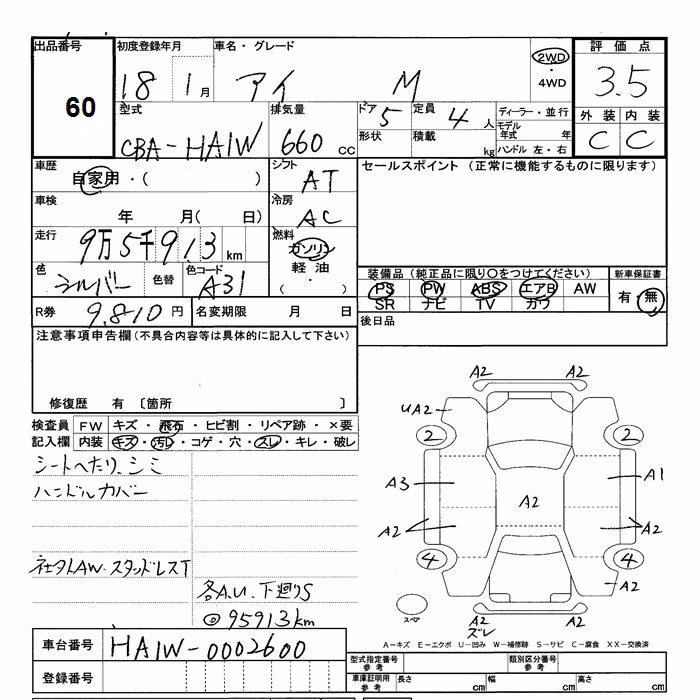 出品番号 初度登録年月 車名・グレード 評価点
60 18 1月 アイ M 2WD ・ 4WD 3.5
型式 排気量 ドア 定員 ディーラー・並行 外装 内装
CBA-HA1W 660 cc 5 4人 モデル年式 年 C C
形状 積載 kg ハンドル 左・右
車歴 シフト セールスポイント (正常に機能するものに限ります)
自家用・( ) AT
車検 冷房
年 月( 日) AC
走行 燃料
9万5千913 km ガソリン
軽油
・( )
色 色替 色コード 装備品 (純正品に限り○をつけてください) 新車保証書
シルバー A31 PS PW ABS エアB AW 有・無
SR ナビ TV カワ
R券 9,810円 名変期限 月 日 後日品
注意事項申告欄(不具合内容等は具体的に記入して下さい)
修復歴 有 〔箇所 〕
検査員 FW キズ・飛石・ヒビ割・リペア跡・×要
記入欄 内装 キズ・汚レ・コゲ・穴・スレ・キレ・破レ
シートへたり、シミ
ハンドルカバー
社外AW. スタッドレスT
各A.U. 下廻りS
◎95913km
A2 A2
UA2
2 2
A3 A1
A2
A2 A2
4 4
A2
A2 A2
ズレ
スペア
A-キズ E-エクボ U-凹み W-補修跡 S-サビ C-腐食 XX-交換済
車台番号 HA1W-0002600
登録番号
型式指定番号 参考 類別区分番号 参考
車庫証明用 参考 長さ cm 幅 cm 高さ cm